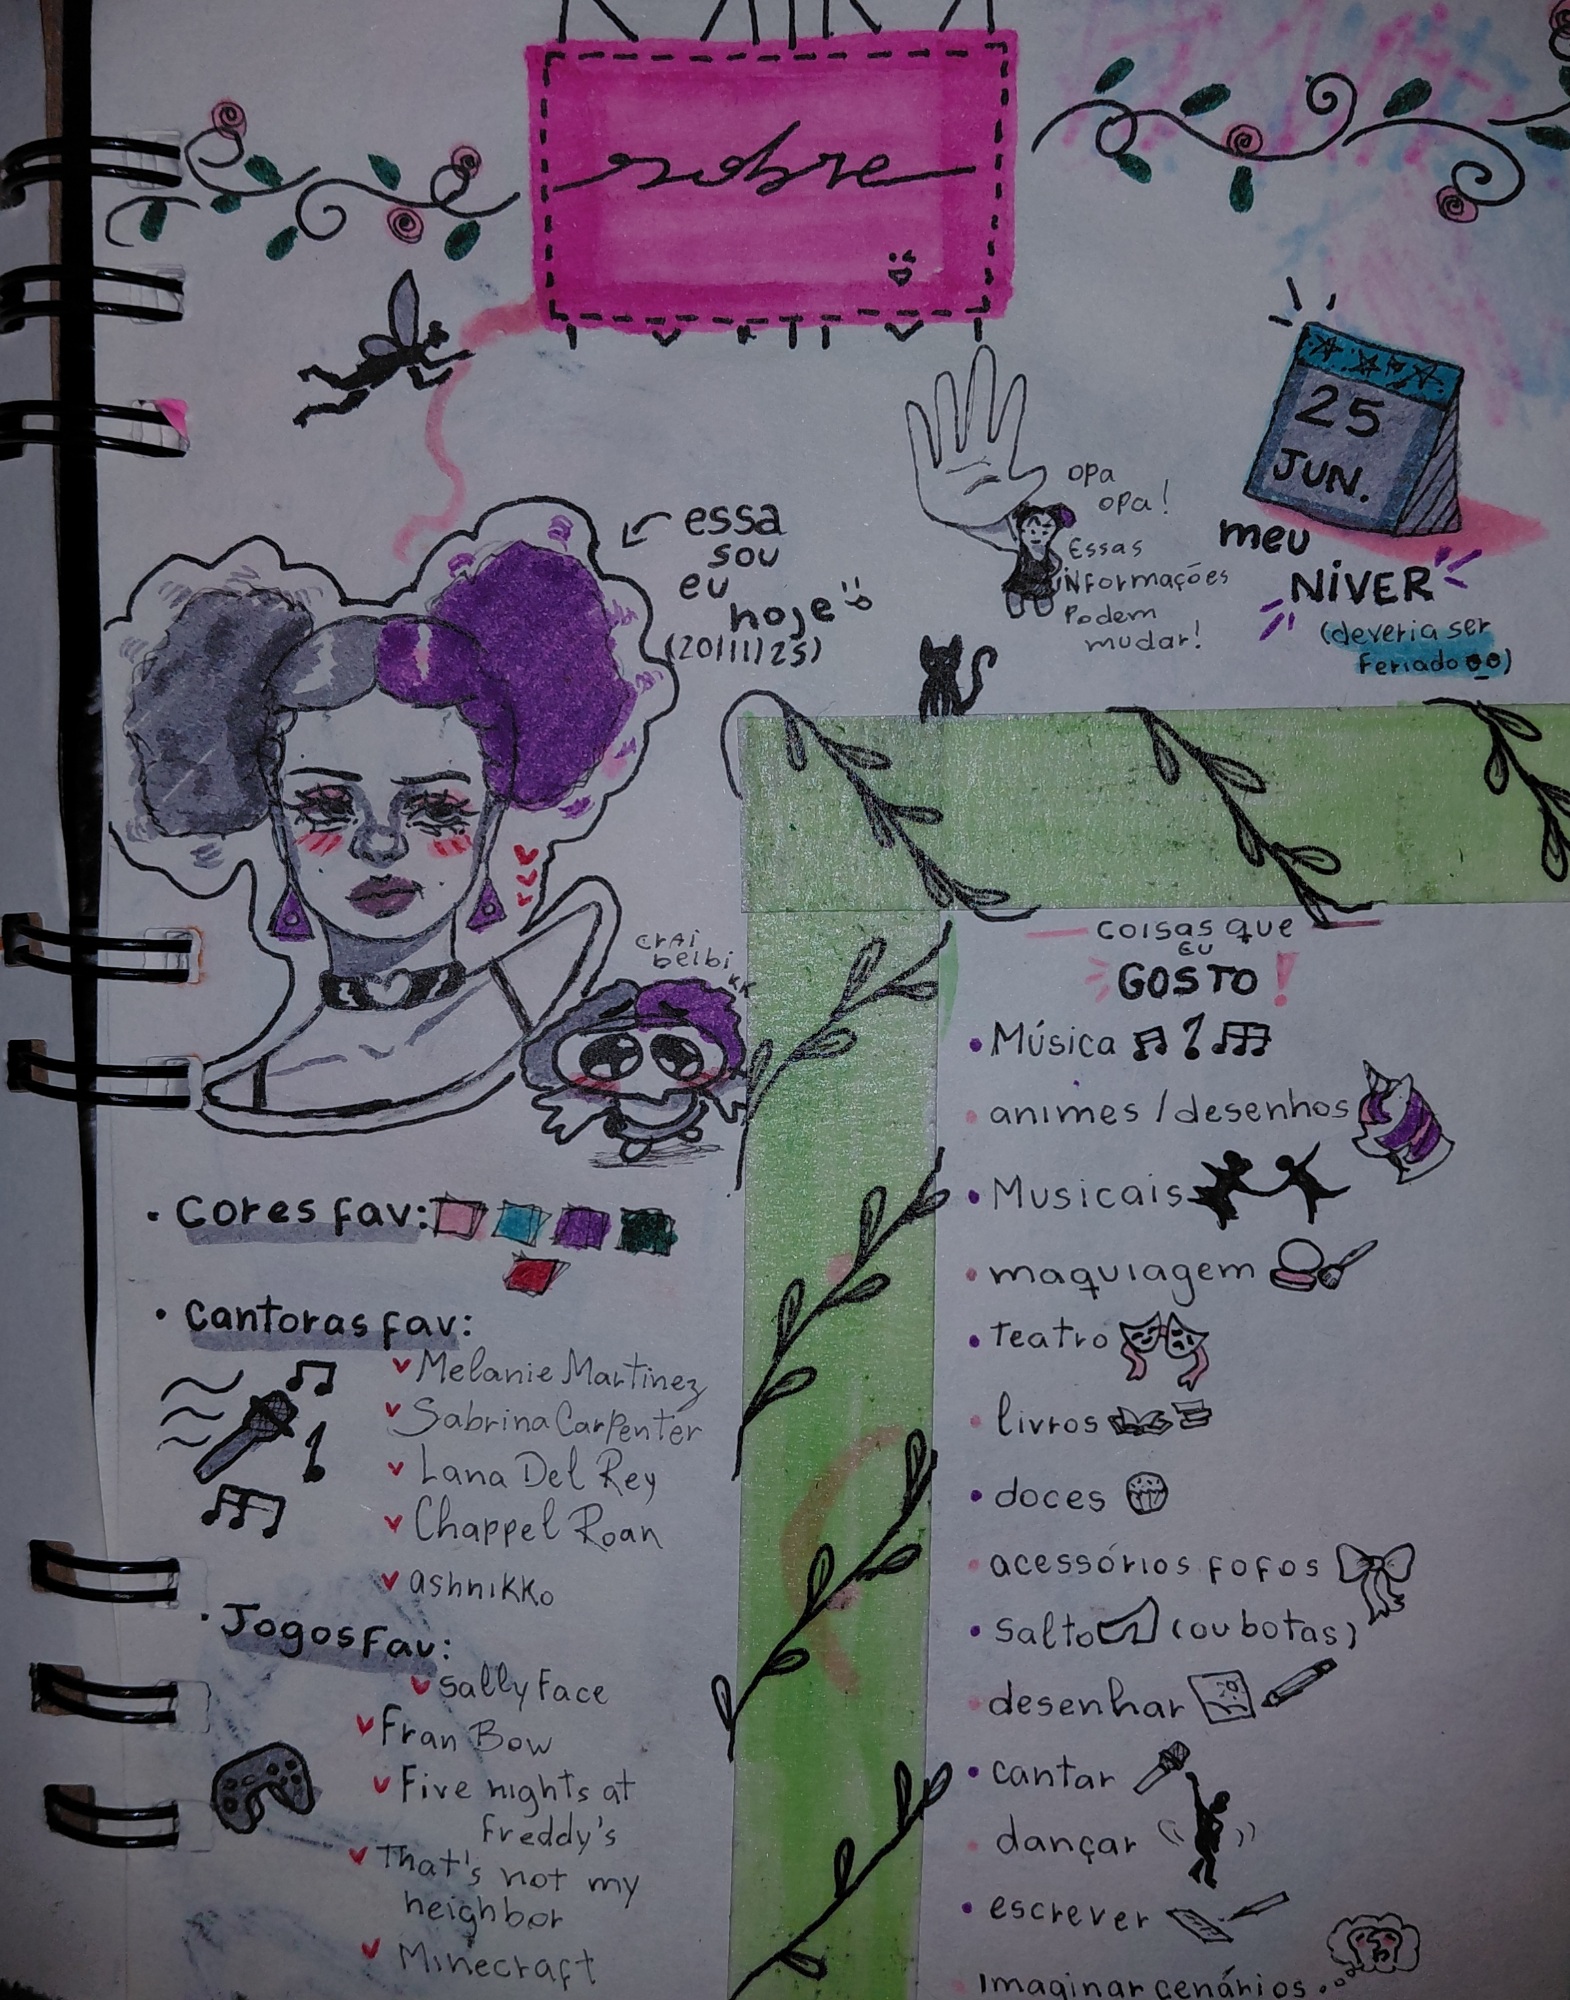 sobre
25
JUN.
meu
NIVER
(deveria ser
feriado
essa
sou
eu
hoje
(20/11/25)
opa
opa!
Essas
informações
Podem
mudar!
crai
belbi
kk
• Cores fav:
• Cantoras fav:
Melanie Martinez
Sabrina Carpenter
Lana Del Rey
Chappel Roan
ashnikko
• Jogos Fav:
Sally Face
Fran Bow
Five nights at
freddy's
That's not my
neighbor
Minecraft
coisas que
EU
GOSTO!
• Música
• animes / desenhos
• Musicais
• maquiagem
• teatro
• livros
• doces
• acessórios fofos
• salto (ou botas)
• desenhar
• cantar
• dançar
• escrever
• imaginar cenários...